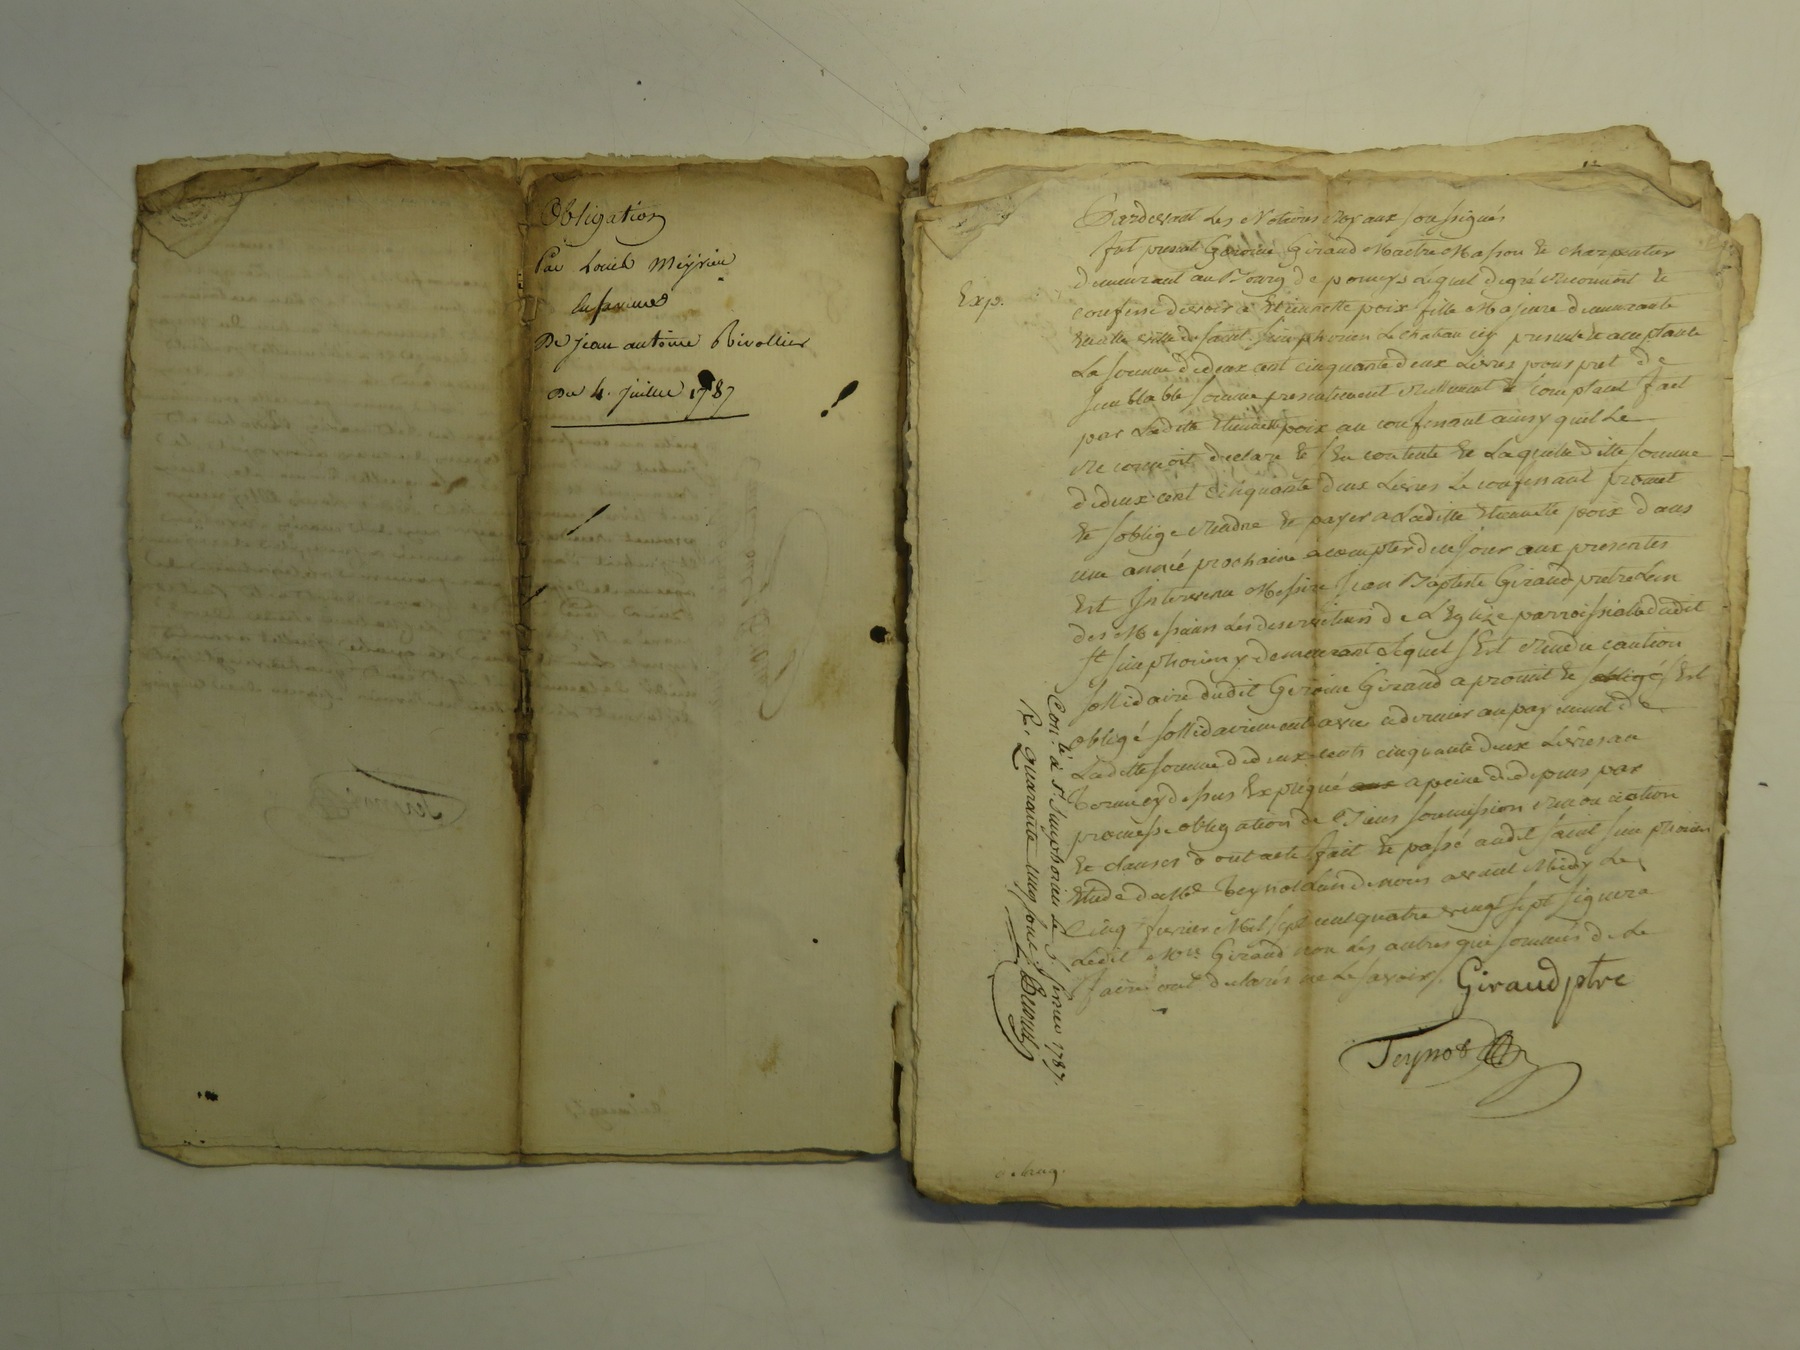 Obligation
Par Louis Meyrieu
En faveur
De jean antoine Rivollier
Du 4. juillet 1787
Exp.
Pardevant Les Notaires Royaux soussignés
fut present Geroine Giraud Maitre Masson Et charpentier
demeurant au Bourg de pomeys Lequel de gré reconnoit Et
confesse devoir a Etiennette poix fille Majeure demeurante
En cette ville de saint simphorien Le chateau icy presente acceptante
La somme de deux cent cinquante deux Livres pour pret de
semblable somme presentement reellement Et comptant fait
par Ladite Etiennette poix au confessant ainsy quil Le
reconnoit declare Et sen contente Et Laquelle ditte somme
de deux cent cinquante deux Livres Le confessant promet
Et soblige rendre Et payer a Laditte Etiennette poix dans
une année prochaine a compter de ce jour aux presentes
Est Intervenu Messire Jean Baptiste Giraud pretre Lun
des Messieurs Les deserviteurs de LEglize parroissialle dudit
st simphorien y demeurant Lequel sEst rendu caution
sollidaire dudit Geroine Giraud a promit Et sobligé sEst
obligé sollidairement avec ce dernier au payement de
Laditte somme de deux cents cinquante deux Livres au
terme cy dessus Expliqué aux a peine de depens par
promesse obligation de Biens soumission renonciation
Et clauses dont acte fait Et passé audit saint simphorien
Etude de Me Teynod Lun de nous avant Midy Le
cinq fevrier Mil sept cent quatre vingt sept signera
Ledit Mre Giraud non Les autres qui sommés de Le
faire ont declarés ne Le savoir. Giraud ptre
Teynod
Con.lé à St. Simphorien le 5. fevrier 1787.
R. quarante un sous